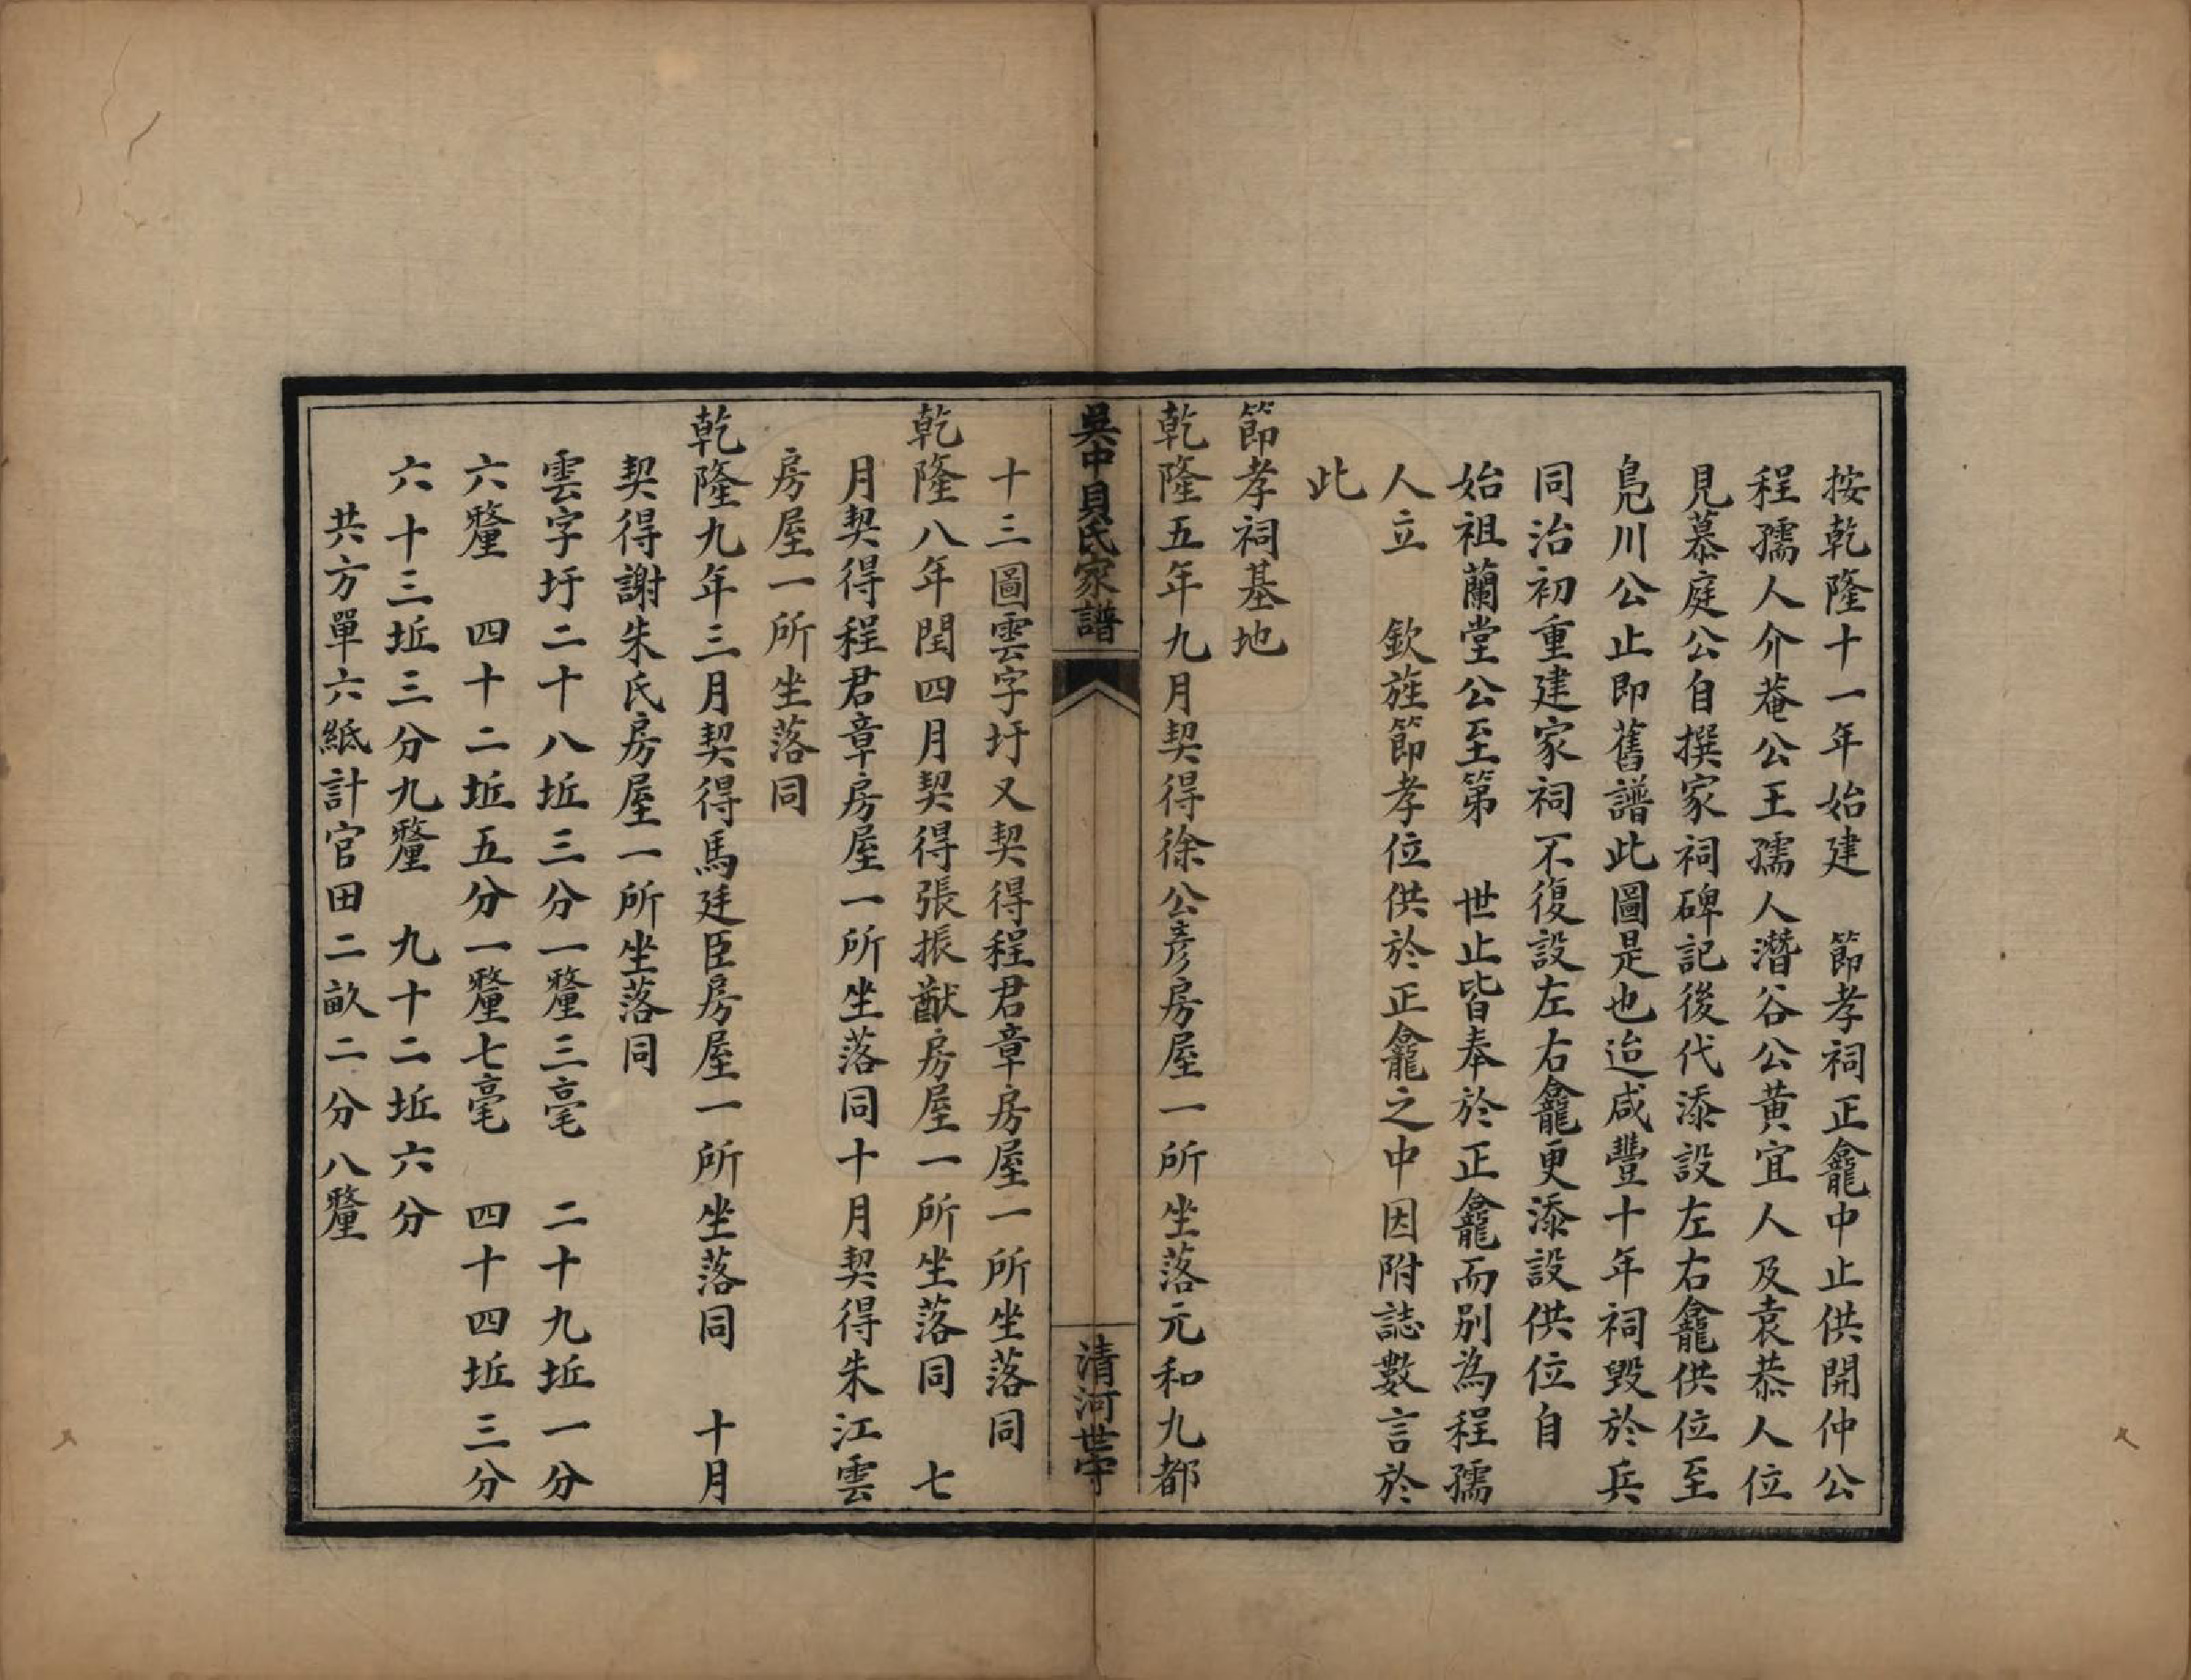 按乾隆十一年始建　節孝祠正龕中止供開仲公
程孺人介菴公王孺人濳谷公黄宜人及袁恭人位
見慕庭公自撰家祠碑記後代添設左右龕供位至
鳧川公止即舊譜此圖是也迨咸豐十年祠毀於兵
同治初重建家祠不復設左右龕更添設供位自
始祖蘭堂公至第　世止皆奉於正龕而别為程孺
人立　欽旌節孝位供於正龕之中因附誌數言於
此
節孝祠基地
乾隆五年九月契得徐公彥房屋一所坐落元和九都
吳中貝氏家譜
清河世守
十三圖雲字圩又契得程君章房屋一所坐落同
乾隆八年閏四月契得張振猷房屋一所坐落同　七
月契得程君章房屋一所坐落同十月契得朱江雲
房屋一所坐落同
乾隆九年三月契得馬廷臣房屋一所坐落同　十月
契得謝朱氏房屋一所坐落同
雲字圩二十八坵三分一釐三毫　二十九坵一分
六釐　四十二坵五分一釐七毫　四十四坵三分
六十三坵三分九釐　九十二坵六分
共方單六紙計官田二畝二分八釐